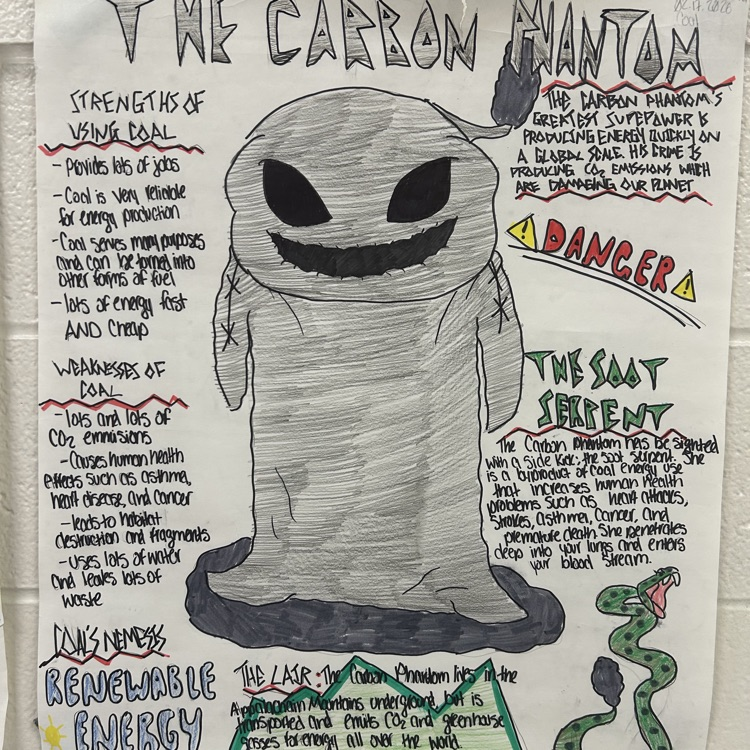 THE CARBON PHANTOM
STRENGTHS OF
USING COAL
- Provides lots of jobs
- Coal is very reliable
for energy production
- Coal serves many purposes
and can be formed into
other forms of fuel
- lots of energy fast
AND Cheap
WEAKNESSES OF
COAL
- lots and lots of
CO2 emmisions
- Causes human health
effects such as asthma,
heart disease, and cancer
- leads to habitat
destruction and fragments
- uses lots of water
and leaves lots of
waste
COAL'S NEMESIS
RENEWABLE
ENERGY
THE CARBON PHANTOM'S
GREATEST SUPEPOWER IS
PRODUCING ENERGY QUICKLY ON
A GLOBAL SCALE. HIS CRIME IS
PRODUCING CO2 EMISSIONS WHICH
ARE DAMAGING OUR PLANET
! DANGER !
THE SOOT
SERPENT
The Carbon Phantom has be sighted
with a side kick; the soot serpent. She
is a byproduct of coal energy use
that increases human health
problems such as heart attacks,
strokes, asthma, cancer, and
premature death. She penetrates
deep into your lungs and enters
your blood stream.
THE LAIR: The Carbon Phantom lives in the
Appalachain Mountains underground, but is
transported and emits CO2 and greenhouse
gasses for energy all over the world.